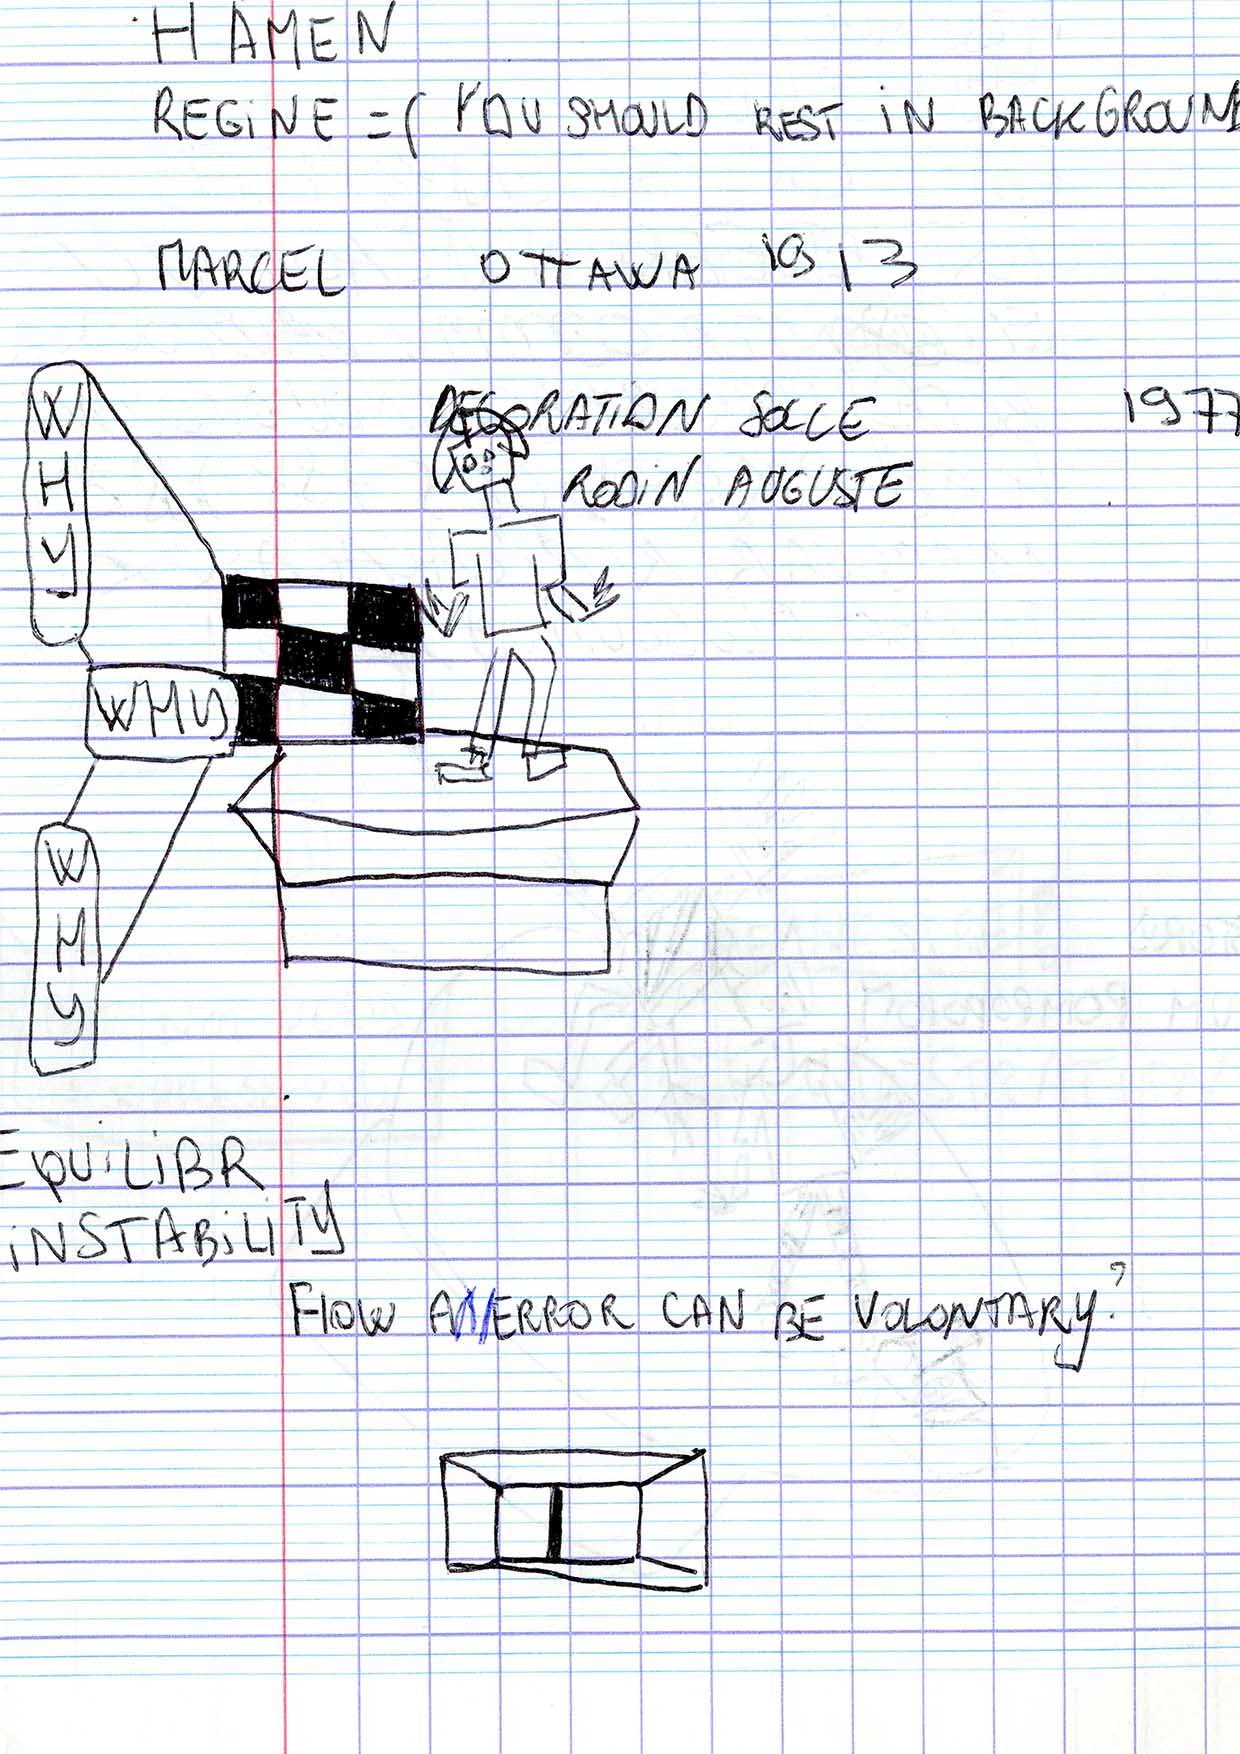 HAMEN
REGINE =( YOU SHOULD REST IN BACKGROUND
MARCEL OTTAWA 1913
DECORATION SOLLE 1977
RODIN AUGUSTE
WHY
WHY
WHY
EQUILIBR
INSTABILITY
HOW AN ERROR CAN BE VOLONTARY?